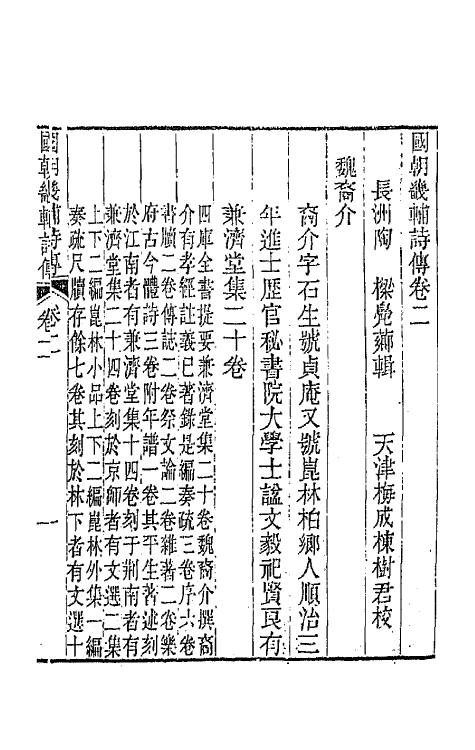 國朝畿輔詩傳卷二
長洲陶　樑鳧薌輯　天津梅成棟樹君校
魏裔介
裔介字石生號貞庵又號崑林柏鄉人順治三
年進士歷官秘書院大學士諡文毅祀賢良有
兼濟堂集二十卷
四庫全書提要兼濟堂集二十卷魏裔介撰裔
介有孝經註義已著錄是編奏疏三卷序六卷
書牘二卷傳誌二卷祭文論二卷雜著二卷樂
府古今體詩三卷附年譜一卷其平生著述刻
於江南者有兼濟堂集十四卷刻于荆南者有
兼濟堂集二十四卷刻於京師者有文選二集
上下二編崑林小品上下二編崑林外集一編
奏疏尺牘存餘七卷其刻於林下者有文選十
國朝畿輔詩傳　卷二　一